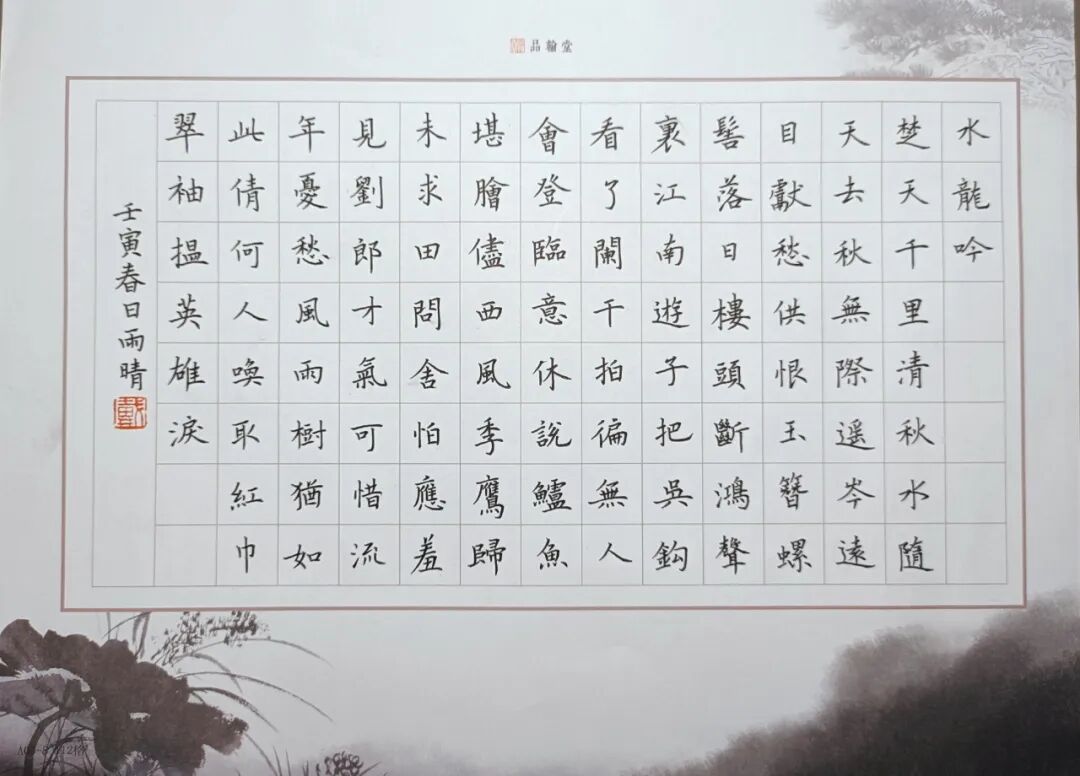 品翰堂
水龍吟
楚天千里清秋水隨
天去秋無際遥岑遠
目獻愁供恨玉簪螺
髻落日樓頭斷鴻聲
裏江南遊子把吳鈎
看了闌干拍徧無人
會登臨意休說鱸魚
堪膾儘西風季鷹歸
未求田問舍怕應羞
見劉郎才氣可惜流
年憂愁風雨樹猶如
此倩何人喚取紅巾
翠袖搵英雄淚
壬寅春日雨晴